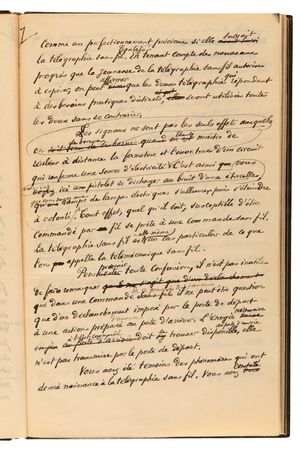 Comme un perfectionnement précieux si elle
la télégraphie sans fil. En tenant compte de nouveaux
progrès que la jeunesse de la télégraphie sans fil autorise
à espérer, on peut affirmer que les deux télégraphies qui répondent
à des besoins pratiques distincts, seront utilisées toutes
les deux sans se contrarier.
Les signaux ne sont pas les seuls effets auxquels
on soit borné quand on est maître de
réaliser à distance la fermeture et l'ouverture d'un circuit
qui renferme une source d'électricité. C'est ainsi que, vous
ici un pistolet se décharger au bruit d'une étincelle,
lampe électrique s'allumer, puis s'éteindre
à volonté. Tout effet, quel qu'il soit, susceptible d'être
commandé par fil se prête à une commande sans fil.
la télégraphie sans fil est un cas particulier de ce que
l'on appelle la télémécanique sans fil.
Pour prévenir toute confusion, il n'est pas inutile
de faire remarquer
que dans une commande sans fil il ne peut être question
que d'un déclanchement imposé par le poste de départ
à une action préparée au poste d'arrivée. L'énergie nécessaire
doit se trouver disponible, elle
n'est pas transmise par le poste de départ.
Vous avez été témoins des phénomènes qui ont
donné naissance à la télégraphie sans fil. Vous avez constaté